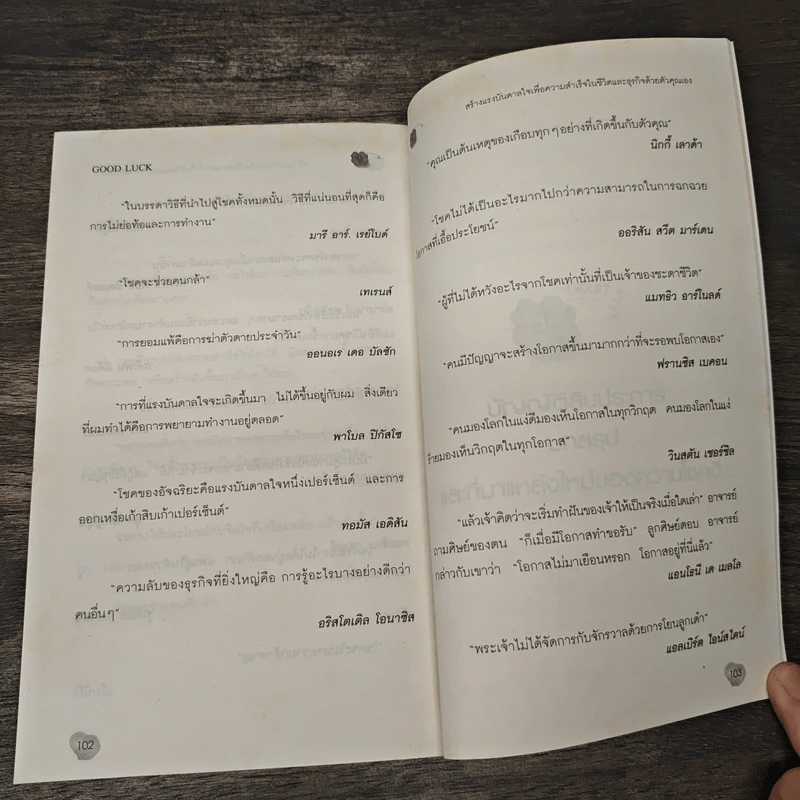 GOOD LUCK
"ในบรรดาวิธีที่นำไปสู่โชคทั้งหมดนั้น วิธีที่แน่นอนที่สุดก็คือ
การไม่ย่อท้อและการทำงาน"
มารี อาร์. เรย์โบด์
"โชคจะช่วยคนกล้า"
เทเรนส์
"การยอมแพ้คือการฆ่าตัวตายประจำวัน"
ออนอเร เดอ บัลซัก
"การที่แรงบันดาลใจจะเกิดขึ้นมา ไม่ได้ขึ้นอยู่กับผม สิ่งเดียว
ที่ผมทำได้คือการพยายามทำงานอยู่ตลอด"
พาโบล ปิกัสโซ
"โชคของอัจฉริยะคือแรงบันดาลใจหนึ่งเปอร์เซ็นต์ และการ
ออกเหงื่อเก้าสิบเก้าเปอร์เซ็นต์"
ทอมัส เอดิสัน
"ความลับของธุรกิจที่ยิ่งใหญ่คือ การรู้อะไรบางอย่างดีกว่า
คนอื่นๆ"
อริสโตเติล โอนาซิส
102
สร้างแรงบันดาลใจเพื่อความสำเร็จในชีวิตและธุรกิจด้วยตัวคุณเอง
"คุณเป็นต้นเหตุของเกือบทุกๆ อย่างที่เกิดขึ้นกับตัวคุณ"
นิกกี้ เลาด้า
"โชคไม่ได้เป็นอะไรมากไปกว่าความสามารถในการฉกฉวย
โอกาสที่เอื้อประโยชน์"
ออริสัน สวีต มาร์เดน
"ผู้ที่ไม่ได้หวังอะไรจากโชคเท่านั้นที่เป็นเจ้าของชะตาชีวิต"
แมทธิว อาร์โนลด์
"คนมีปัญญาจะสร้างโอกาสขึ้นมามากกว่าที่จะรอพบโอกาสเอง"
ฟรานซิส เบคอน
"คนมองโลกในแง่ดีมองเห็นโอกาสในทุกวิกฤต คนมองโลกในแง่
ร้ายมองเห็นวิกฤตในทุกโอกาส"
วินสตัน เชอร์ชิล
"แล้วเจ้าคิดว่าจะเริ่มทำฝันของเจ้าให้เป็นจริงเมื่อใดเล่า" อาจารย์
ถามศิษย์ของตน "ก็เมื่อมีโอกาสทำขอรับ" ลูกศิษย์ตอบ อาจารย์
กล่าวกับเขาว่า "โอกาสไม่มาเยือนหรอก โอกาสอยู่ที่นี่แล้ว"
แอนโธนี เด เมลโล
"พระเจ้าไม่ได้จัดการกับจักรวาลด้วยการโยนลูกเต๋า"
แอลเบิร์ต ไอน์สไตน์
103